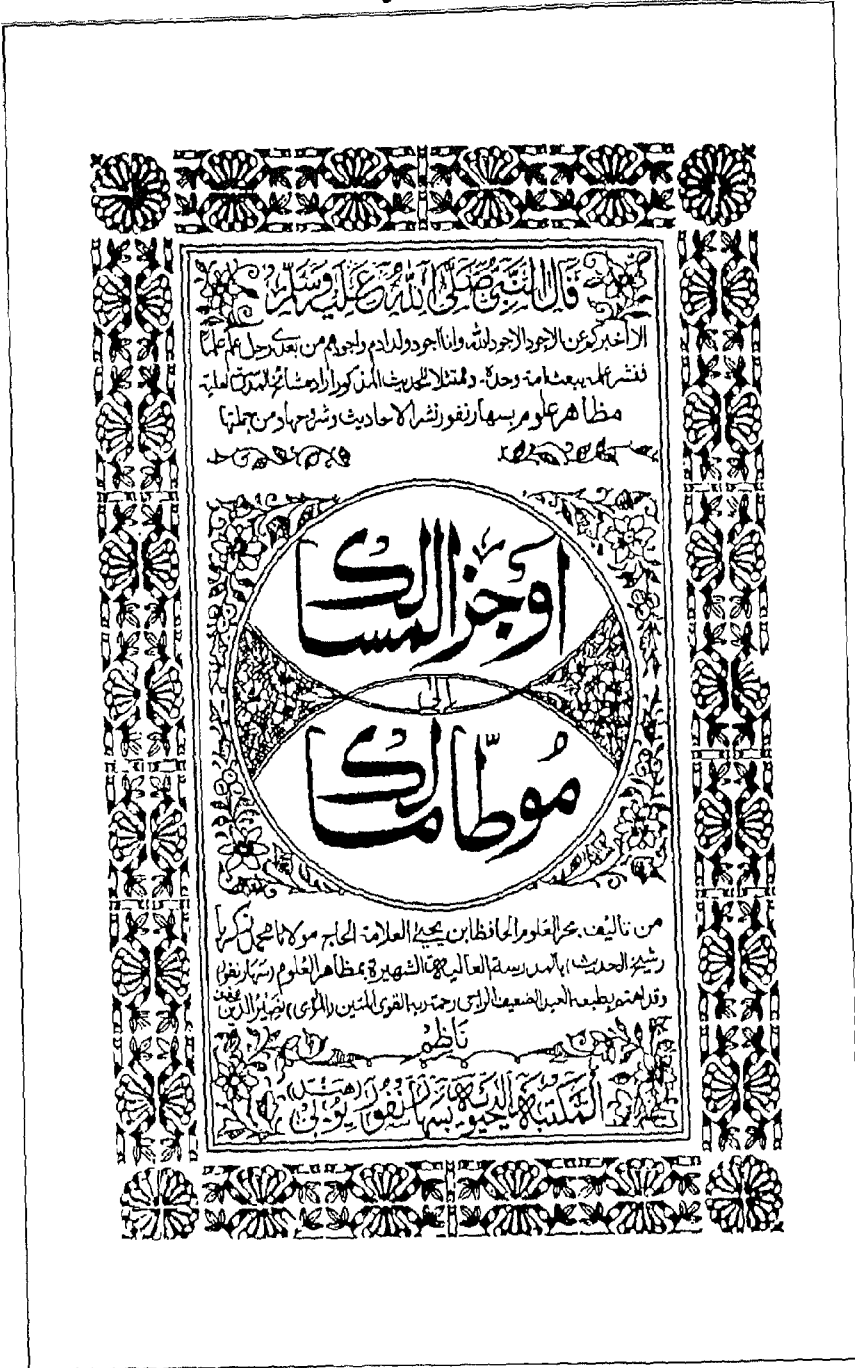 قال النبي صلى الله عليه وسلم
الا اخبركم عن الاجود الاجود الله وانا اجود ولد ادم واجودهم من بعدي رجل علم علما
فنشر علمه يبعث امة وحدة۔ وممتثلا للحديث المذكور اراد مشائخ المدرسة العالية
مظاهر علوم بسهارنفور نشر الاحاديث وشروحها ومن جملتها
اوجز المسالك
الى
مُوطّا مالك
من تاليف بحر العلوم الحافظ ابن يحيىٰ العلامة الحاج مولانا محمد زكريا
(شيخ الحديث) بالمدرسة العالية الشهيرة بمظاهر العلوم (سَهارنفور)
وقد اهتم بطبعه العبد الضعيف الراجي رحمة ربه القوي المتين نصير الدين
نَاظِمُ
المكتبة اليحيوية بسهارنفور (الهند) يوپى